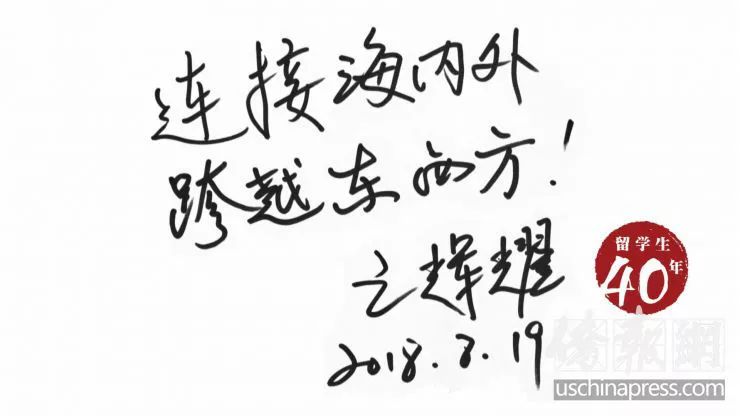 连接海内外
跨越东西方!
王辉耀
2018.8.19
留学生
40年
侨报網
uschinapress.com